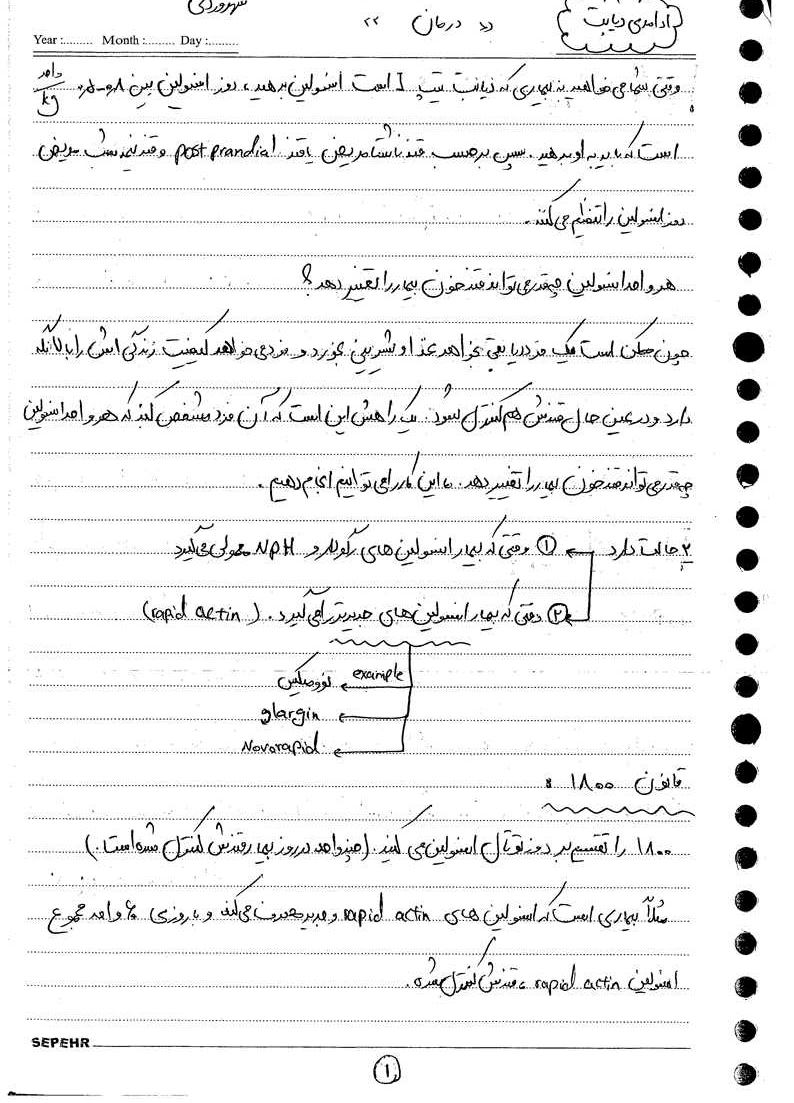 سهروردی
ادامه‌ی دیابت
« درمان »
Year :......... Month :......... Day :.........
وقتی شما می خواهید به بیماری که دیابت تیپ I است انسولین بدهید ، دوز انسولین بین ۰.۵-۰.۸ واحد/kg
است که باید به او بدهید . سپس برحسب قند ناشتا مریض یا قند post prandial و قند نیمه شب مریض
دوز انسولین را تنظیم می کنند .
هر واحد انسولین چقدر می تواند قند خون بیمار را تغییر دهد ؟
چون ممکن است یک فرد دیابتی بخواهد غذا و شیرینی بخورد و فرد می خواهد کیفیت زندگی اش را بالا نگه
دارد و در عین حال قندش هم کنترل شود . یک راهش این است که آن فرد مشخص کند که هر واحد انسولین
چقدر می تواند قند خون بیمار را تغییر دهد . ما این کار را می توانیم انجام دهیم .
۲ حالت دارد ① وقتی که بیمار انسولین های رگولار و NPH معمولی می گیرد
② وقتی که بیمار انسولین های جدیدتر را می گیرد . ( rapid actin)
example نوومیکس
glargin
Novorapid
قانون ۱۸۰۰ :
۱۸۰۰ را تقسیم بر دوز توتال انسولین می کنند . (چند واحد در روز بیمار قندش کنترل شده است .)
مثلاً بیماری است که انسولین های rapid actin و جدید مصرف می کند و با روزی ۶۰ واحد مجموع
انسولین rapid actin ، قندش کنترل شده .
SEPEHR
۱